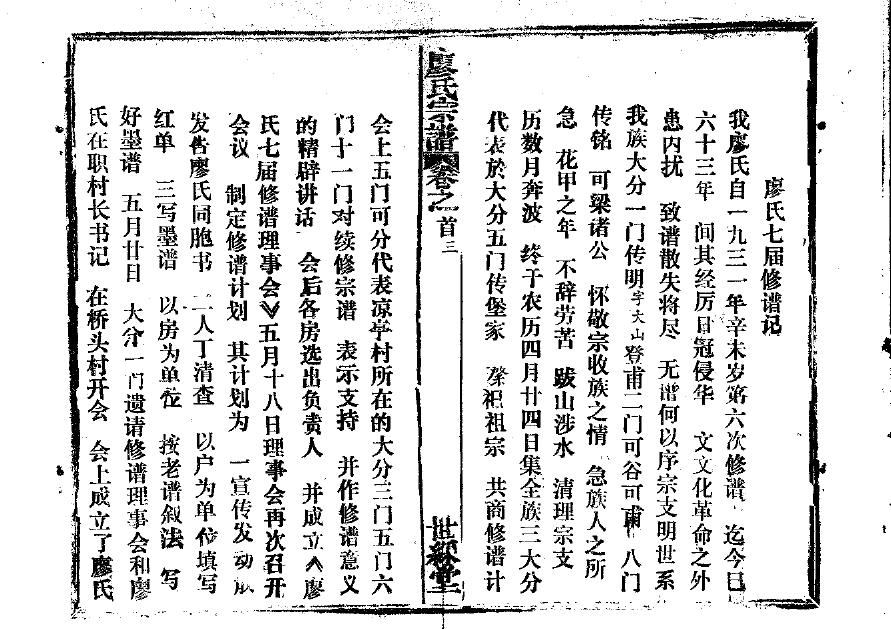 廖氏七届修谱记
我廖氏自一九三一年辛未岁第六次修谱 迄今已
六十三年 间其经厉日冠侵华 文文化革命之外
患内扰 致谱散失将尽 无谱何以序宗支明世系
我族大分一门传明字大山登甫二门可谷可甫 八门
传铭 可梁诸公 怀敬宗收族之情 急族人之所
急 花甲之年 不辞劳苦 跋山涉水 清理宗支
历数月奔波 终于农历四月廿四日集全族三大分
代表於大分五门传堡家 祭祖宗 共商修谱计
廖氏宗谱 卷之一首 三
世彩堂
会上五门可分代表凉亭村所在的大分三门五门六
门十一门对续修宗谱 表示支持 并作修谱意义
的精辟讲话 会后各房选出负责人 并成立《廖
氏七届修谱理事会》五月十八日理事会再次召开
会议 制定修谱计划 其计划为 一宣传发动
发告廖氏同胞书 二人丁清查 以户为单位填写
红单 三写墨谱 以房为单位 按老谱叙法 写
好墨谱 五月廿日 大分一门遗请修谱理事会和廖
氏在职村长书记 在桥头村开会 会上成立了廖氏